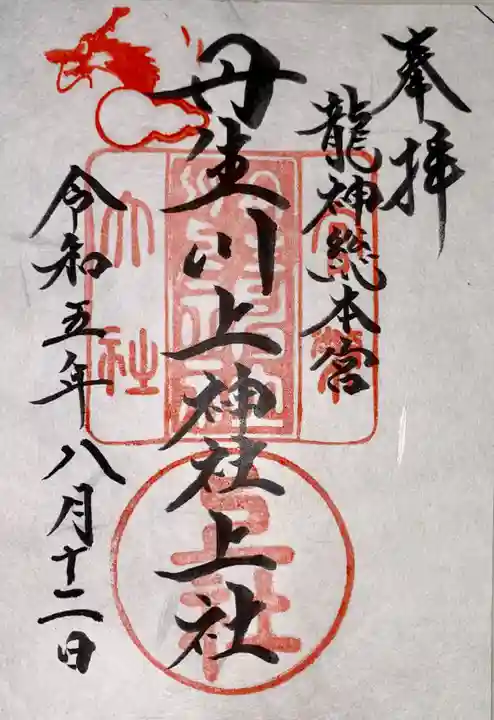 奉拝
龍神総本宮
丹生川上神社上社
令和五年八月十二日
上社
大社